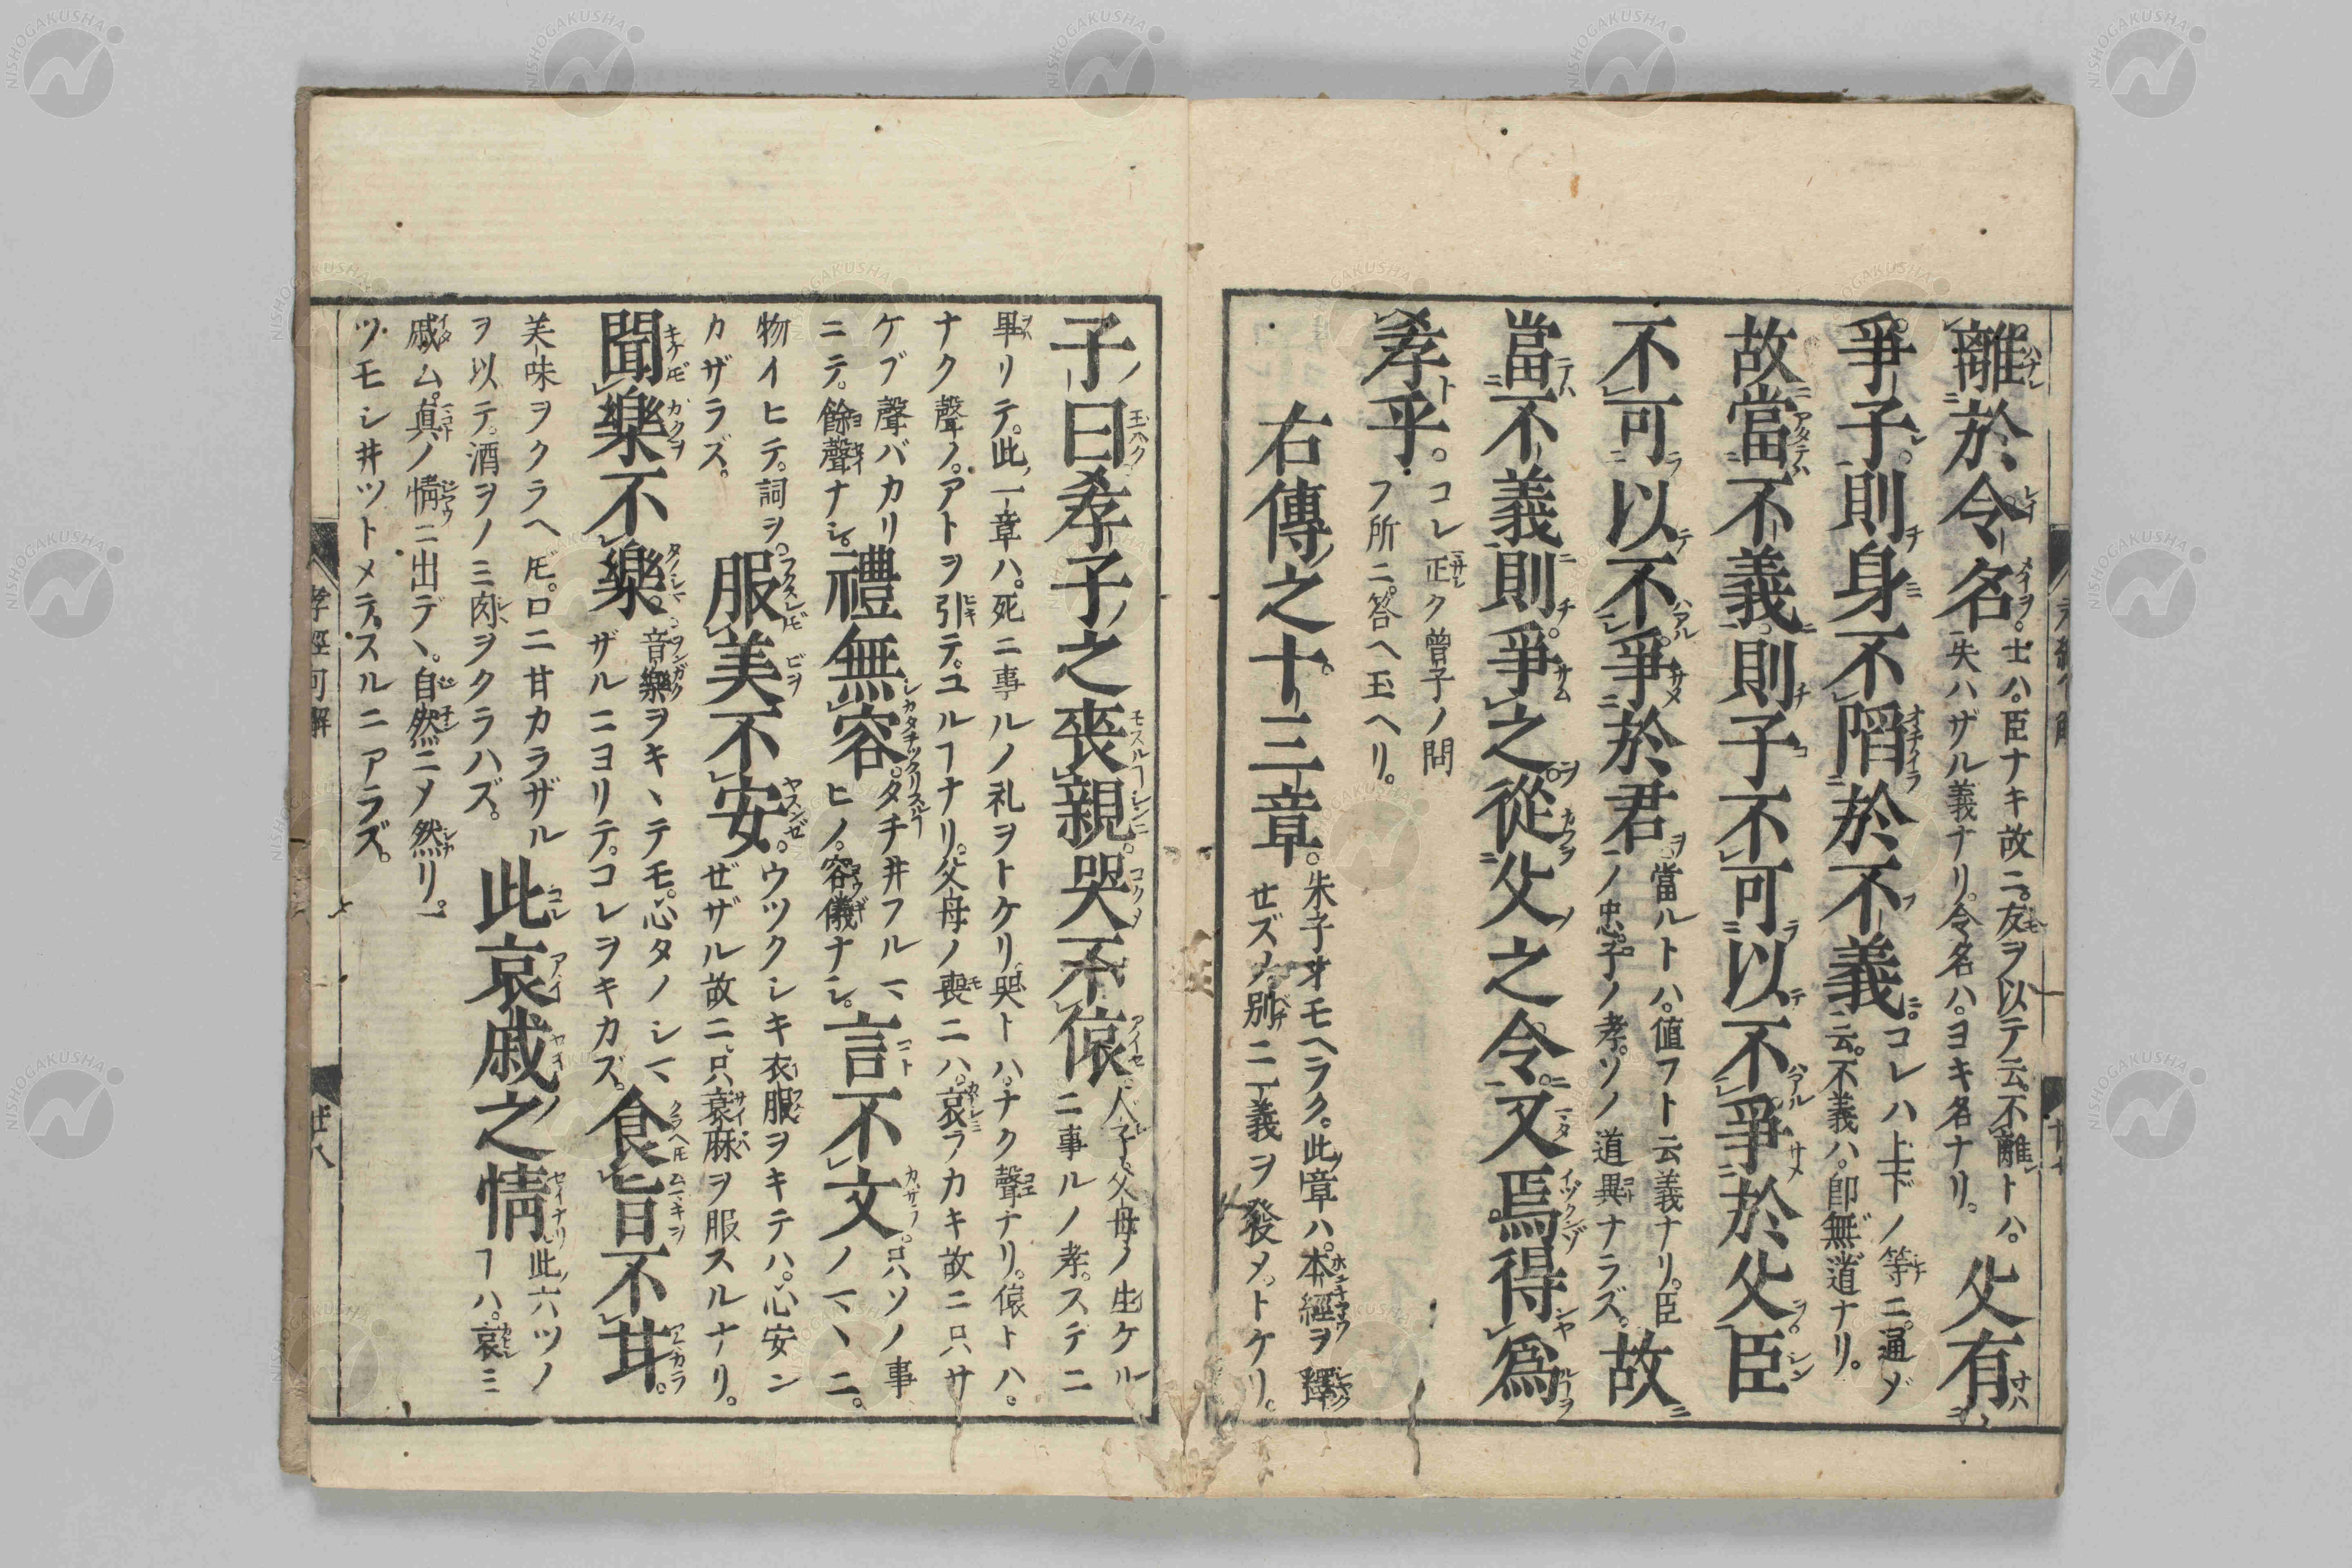 離於令名 士ハ。臣ナキ故ニ。友ヲ以テ云。不離トハ。
失ハザル義ナリ。令名ハ。ヨキ名ナリ。 父有
爭子則身不陷於不義 コレハ上下ノ等ニ。通ジ
云。不義ハ。卽無道ナリ。
故當不義則子不可以不爭於父臣
不可以不爭於君 當ルトハ。値フト云義ナリ。臣
ノ忠。子ノ孝。ソノ道異ナラズ。 故
當不義則爭之從父之令又焉得爲
孝乎。 コレ正ク曾子ノ問
フ所ニ。答ヘ玉ヘリ。
右傳之十三章。 朱子オモヘラク。此章ハ。本經ヲ釋
セズメ。別ニ一義ヲ發メ。トケリ。
子曰孝子之喪親哭不偯 人子。父母ノ生ケル
ニ事ルノ孝。ステニ
畢リテ。此一章ハ。死ニ事ルノ礼ヲトケリ。哭トハ。ナク聲ナリ。偯トハ。
ナク聲ノ。アトヲ引テ。ユルヿナリ。父母ノ喪ニハ。哀ラカキ故ニ只サ
ケブ聲バカリ
ニテ。餘聲ナシ。 禮無容。 タチ井フルマ
ヒノ。容儀ナシ。 言不文 只ソノ事
ノマヽニ。
物イヒテ。詞ヲ
カザラズ。 服美不安。 ウツクシキ衣服ヲキテハ。心安ン
ゼザル故ニ。只衰麻ヲ服スルナリ。
聞樂不樂。 音樂ヲキヽテモ。心タノシマ
ザルニヨリテ。コレヲキカズ。 食旨不甘。
美味ヲクラヘ𪜈。口ニ甘カラザル
ヲ以テ。酒ヲノミ肉ヲクラハズ。 此哀戚之情 此六ツノ
ヿハ。哀ミ
戚ム。眞ノ情ニ出デヽ。自然ニメ然リ。
ツモシ井ツトメテ。スルニアラズ。
孝經